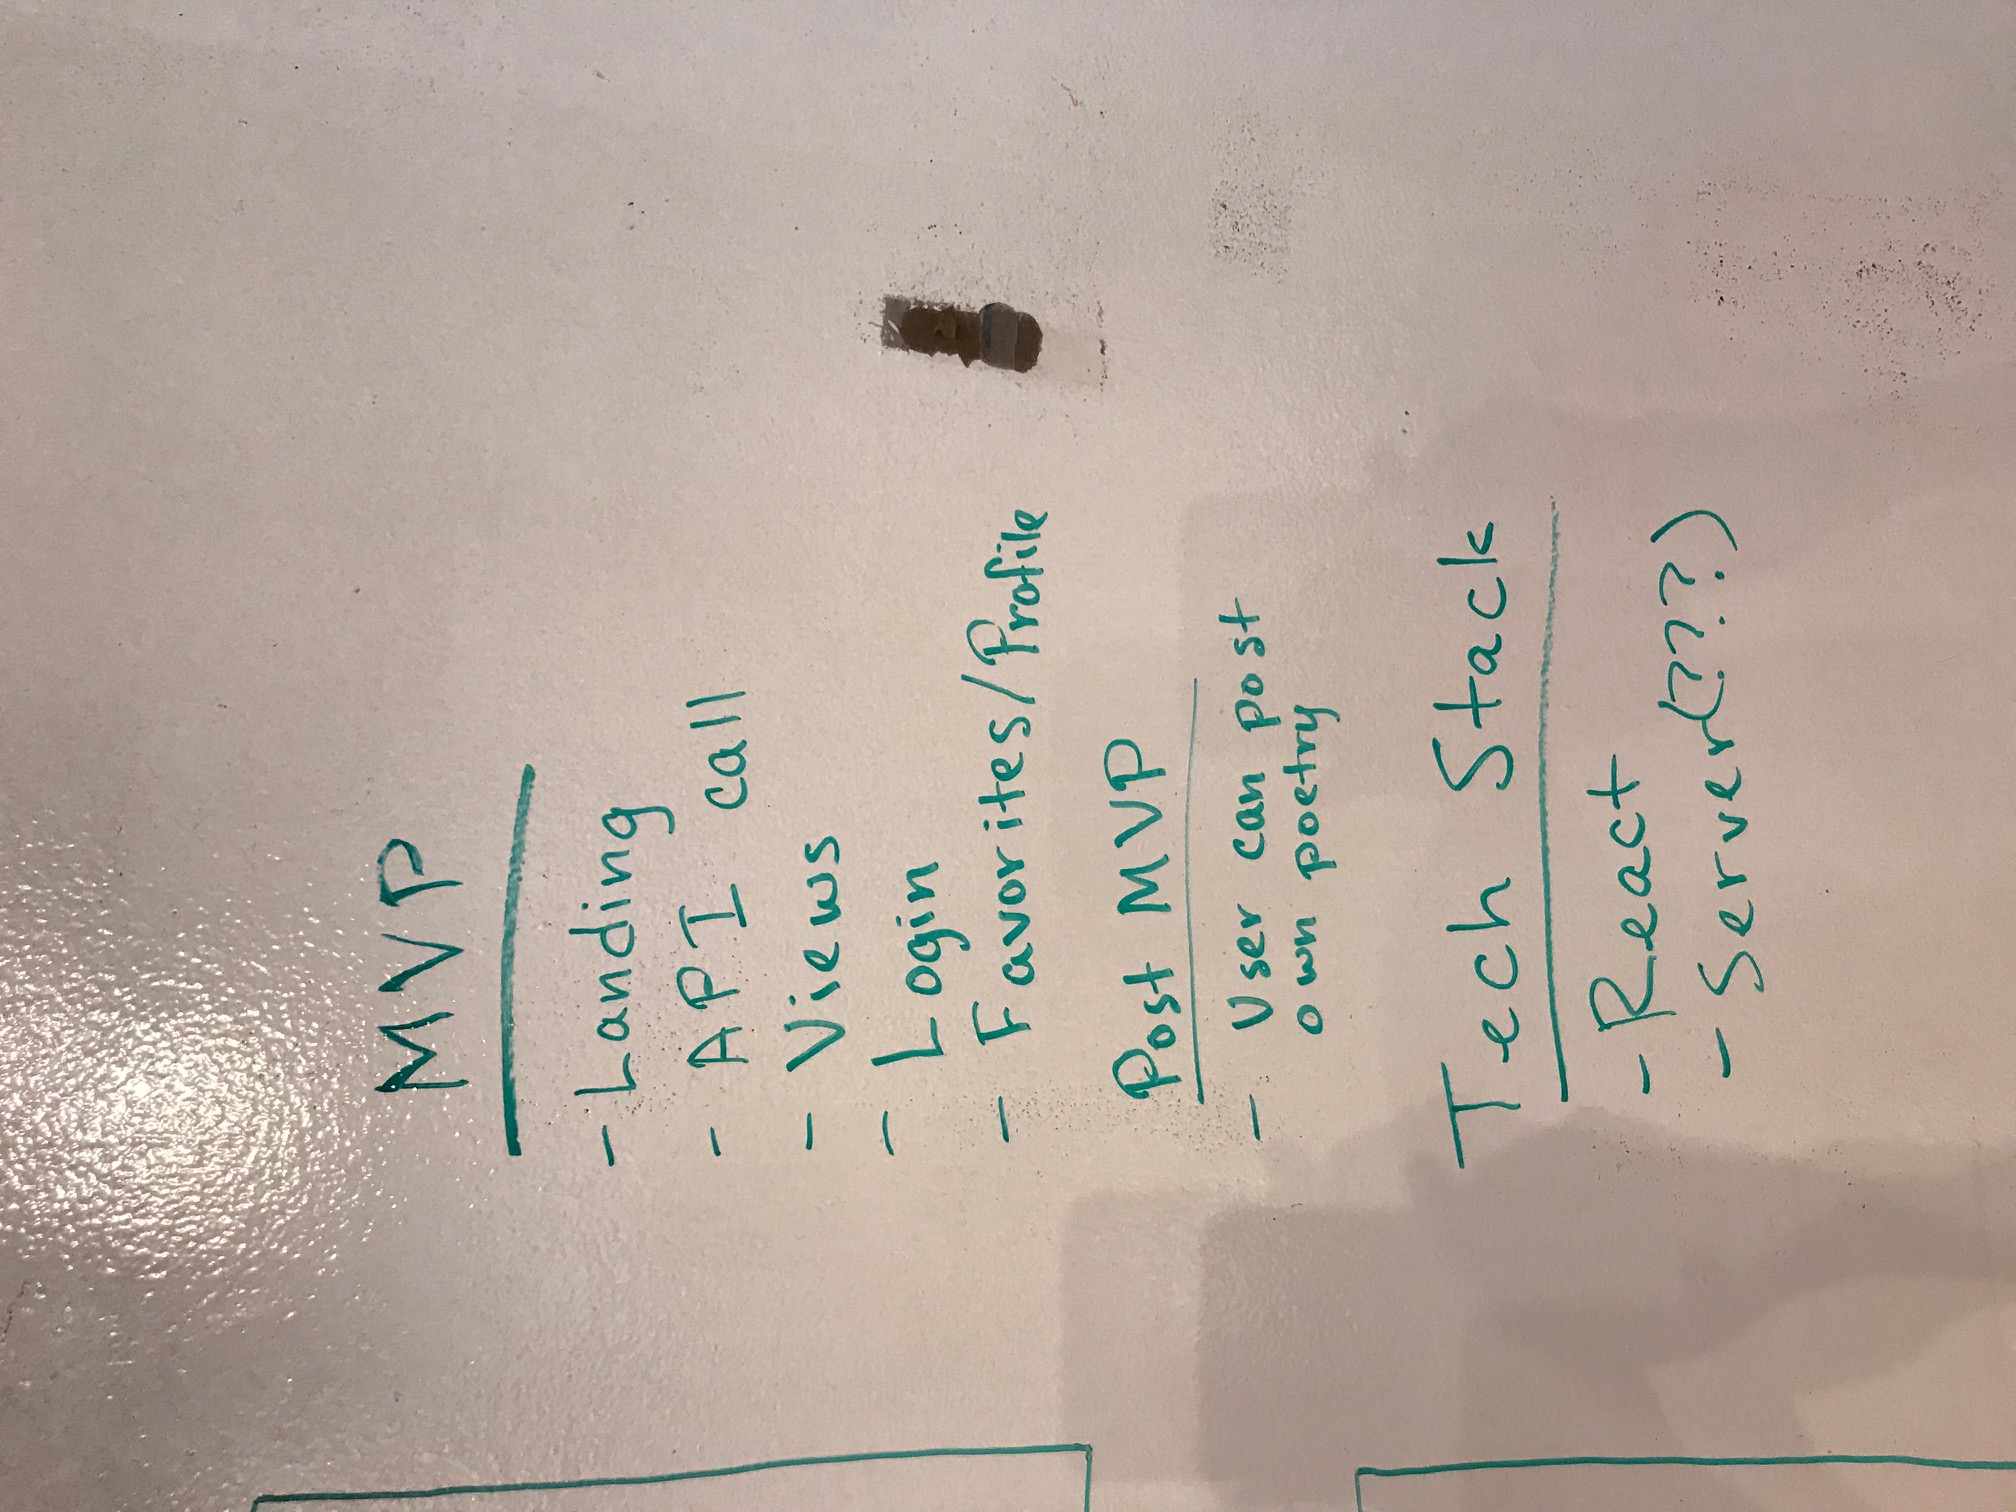 MVP
- Landing
- API call
- Views
- Login
- Favorites/Profile
Post MVP
- User can post
own poetry
Tech Stack
- React
- Server(???)